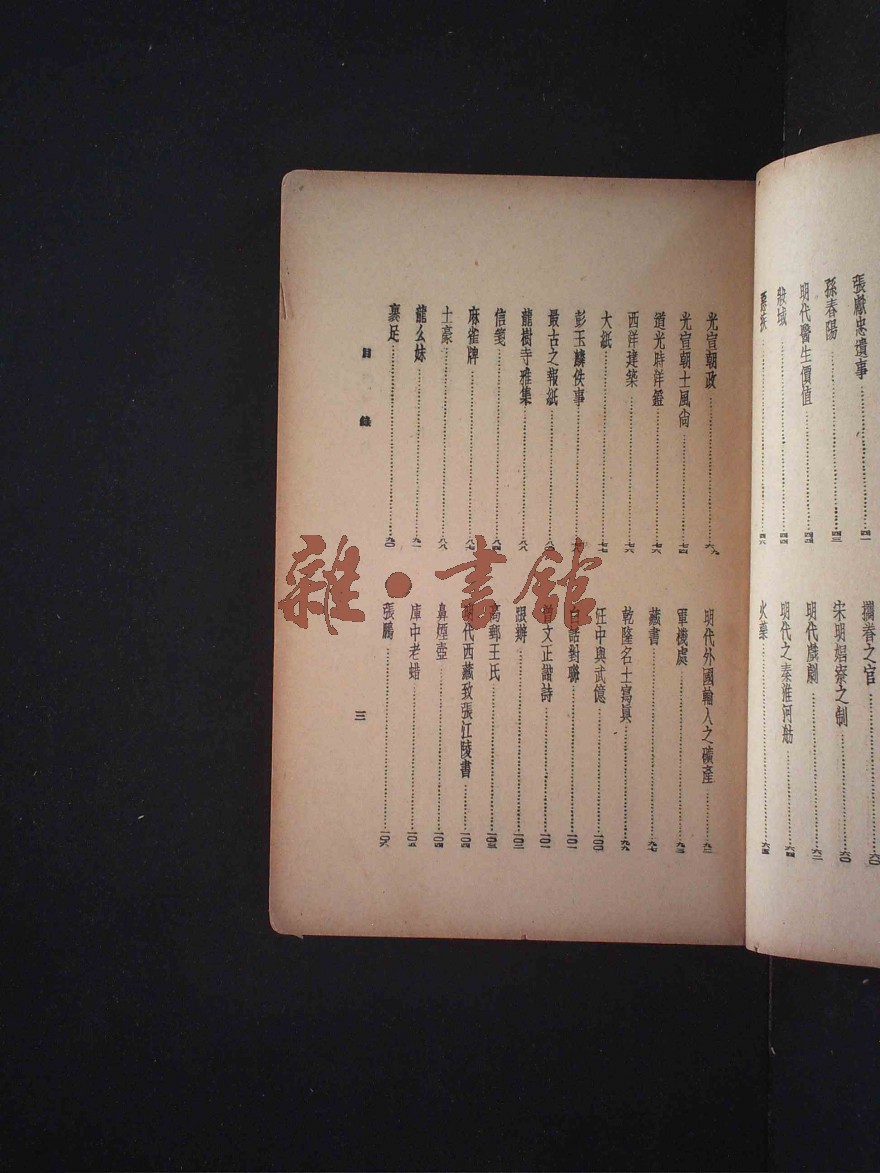 張獻忠遺事……四一
孫春陽……四三
明代醫生價值……四四
殺城……四四
……四六
攔眷之官……六〇
朱明娼寮之制……六〇
明代戲劇……六二
明代之秦淮河舫……六四
火藥……六五
光宣朝政……六九
光宣朝士風尚……七四
道光時洋鐙……七六
西洋建築……七六
大紙……七七
彭玉麟佚事
最古之報紙……八〇
龍樹寺雅集……八八
信箋……八四
麻雀牌……八七
土豪……八八
龍么妹……九一
裹足……九〇
明代外國輸入之礦產……九二
軍機處……九三
藏書……九七
乾隆名士寫眞……九九
汪中與武億……一〇〇
白話對聯……一〇一
曾文正諧詩……一〇一
跟辦……一〇二
高郵王氏……一〇三
明代西藏致張江陵書……一〇四
鼻煙壺……一〇四
庫中老蜡……一〇五
張鵬……一〇六
目錄
三
雜·書館